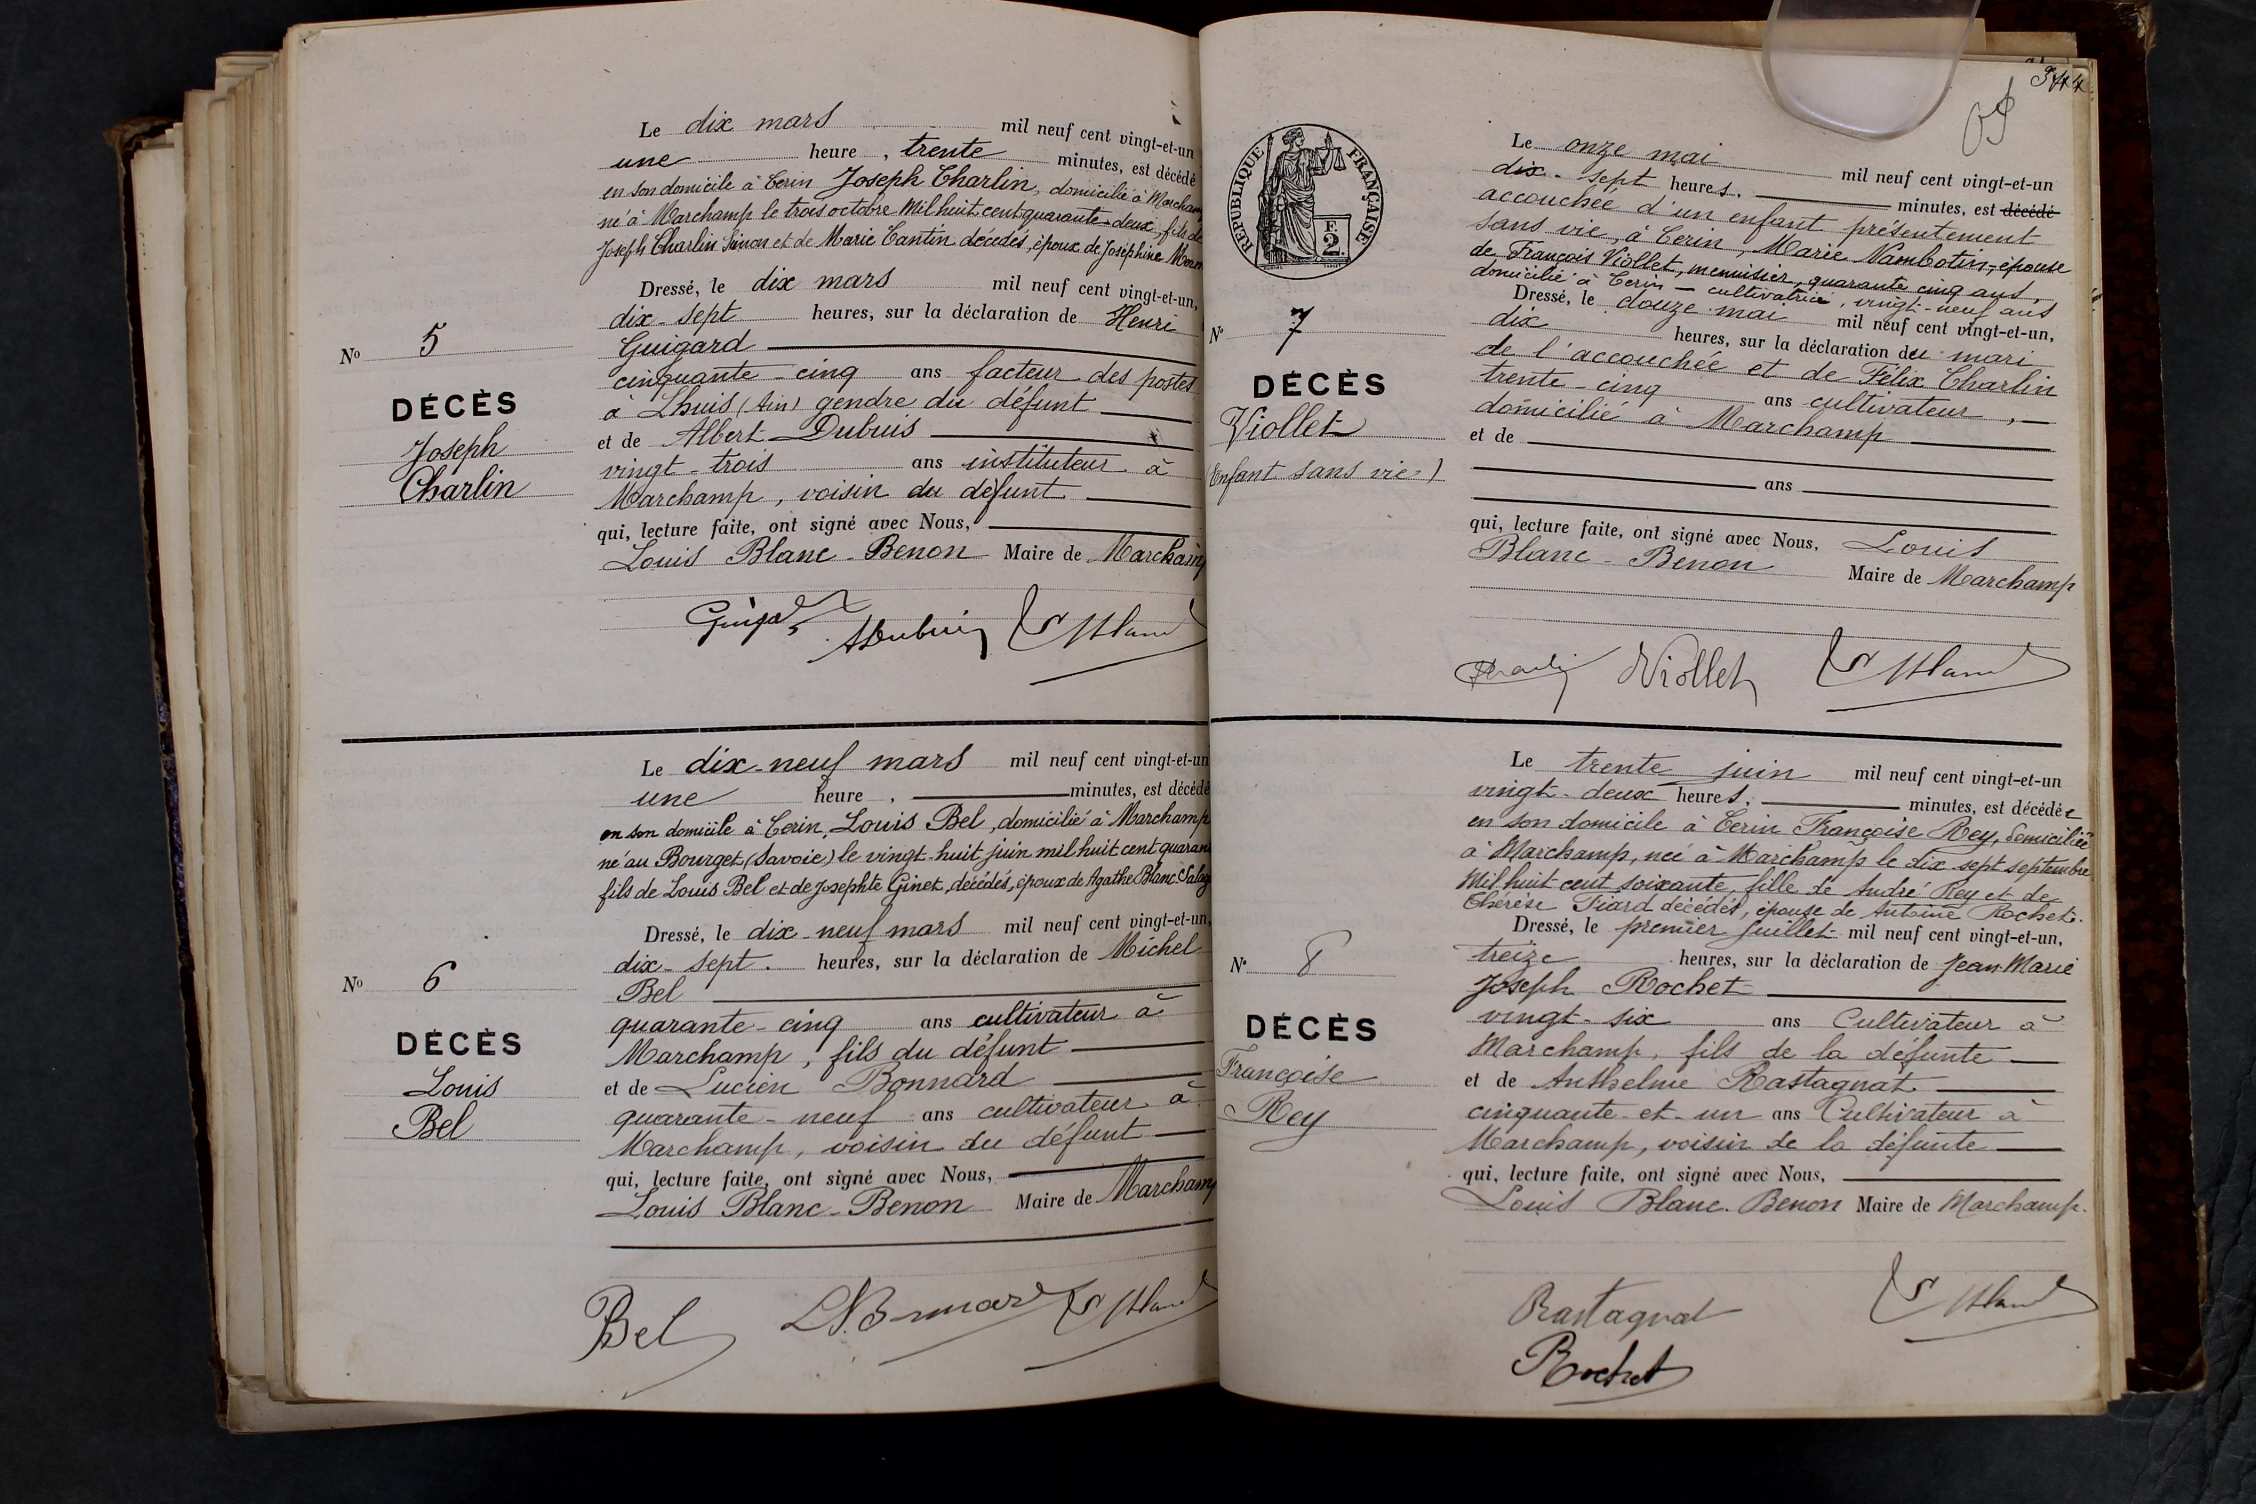 Le dix mars mil neuf cent vingt-et-un
une heure, trente minutes, est décédé
en son domicile à Cerin Joseph Charlin, domicilié à Marchamp
né à Marchamp le trois octobre Mil huit cent quarante-deux, fils de
Joseph Charlin Simon et de Marie Cantin décédés, époux de Joséphine
Dressé, le dix mars mil neuf cent vingt-et-un,
dix-sept heures, sur la déclaration de Henri
Guigard
cinquante-cinq ans facteur des postes
à Lhuis (Ain) gendre du défunt
et de Albert Dubuis
vingt-trois ans instituteur à
Marchamp, voisin du défunt
qui, lecture faite, ont signé avec Nous,
Louis Blanc-Benon Maire de Marchamp
No 5
DÉCÈS
Joseph
Charlin
Le dix-neuf mars mil neuf cent vingt-et-un
une heure, minutes, est décédé
en son domicile à Cerin, Louis Bel, domicilié à Marchamp
né au Bourget (Savoie) le vingt-huit juin mil huit cent
fils de Louis Bel et de Josephte Ginet, décédés, époux de Agathe Blanc
Dressé, le dix-neuf mars mil neuf cent vingt-et-un,
dix-sept heures, sur la déclaration de Michel
Bel
quarante-cinq ans cultivateur à
Marchamp, fils du défunt
et de Lucien Bonnard
quarante-neuf ans cultivateur à
Marchamp, voisin du défunt
qui, lecture faite, ont signé avec Nous,
Louis Blanc-Benon Maire de Marchamp
No 6
DÉCÈS
Louis
Bel
Bel
344
RÉPUBLIQUE FRANÇAISE
2 F.
Le onze mai mil neuf cent vingt-et-un
dix-sept heures. minutes, est décédé
accouchée d'un enfant présentement
sans vie, à Cerin, Marie Nambotin, épouse
de François Viollet, menuisier, quarante cinq ans,
domicilié à Cerin - cultivatrice, vingt-neuf ans
Dressé, le douze mai mil neuf cent vingt-et-un,
dix heures, sur la déclaration du mari
de l'accouchée et de Félix Charlin
trente-cinq ans cultivateur,
domicilié à Marchamp
et de
ans
qui, lecture faite, ont signé avec Nous, Louis
Blanc-Benon Maire de Marchamp
No 7
DÉCÈS
Viollet
(Enfant sans vie)
Viollet
Le trente juin mil neuf cent vingt-et-un
vingt-deux heures. minutes, est décédée
en son domicile à Cerin Françoise Rey, domiciliée
à Marchamp, née à Marchamp le dix sept septembre
Mil huit cent soixante, fille de André Rey et de
Thérèse Siard décédés, épouse de Antoine Rochet.
Dressé, le premier juillet mil neuf cent vingt-et-un,
treize heures, sur la déclaration de Jean-Marie
Joseph Rochet
vingt-six ans Cultivateur à
Marchamp, fils de la défunte
et de Anthelme Rastagnat
cinquante-et-un ans Cultivateur à
Marchamp, voisin de la défunte
qui, lecture faite, ont signé avec Nous,
Louis Blanc-Benon Maire de Marchamp.
No 8
DÉCÈS
Françoise
Rey
Rastagnat
Rochet